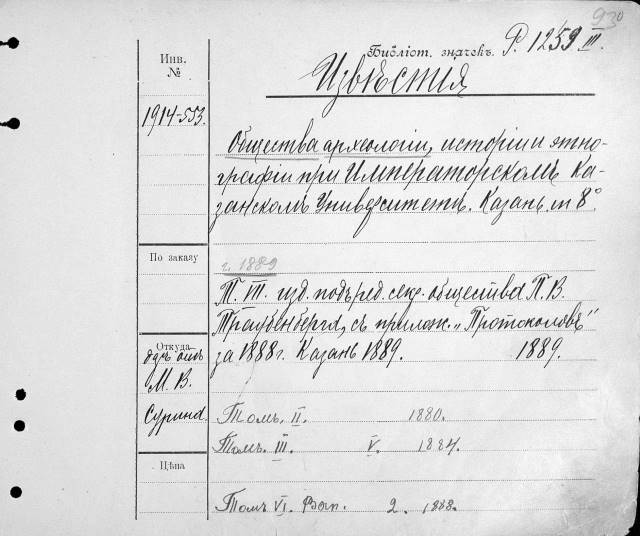 930
Библіот. значекъ. Р. 1259 III.
Инв.
№
Извѣстія
1914-553.
Общества археологіи, исторіи и этно-
графіи при Императорскомъ Ка-
занскомъ Университетѣ. Казань. in 8°.
По заказу
г. 1889
Т. VII. изд. подъ ред. секр. общества П. В.
Траубенберга, съ прилож. „Протоколовъ"
Откуда
за 1888 г. Казань 1889. 1889.
даръ отъ
М. В.
Сурина.
Томъ. II. 1880.
Томъ. III. V. 1884.
Цѣна
Томъ VI. Вып. 2. 1888.